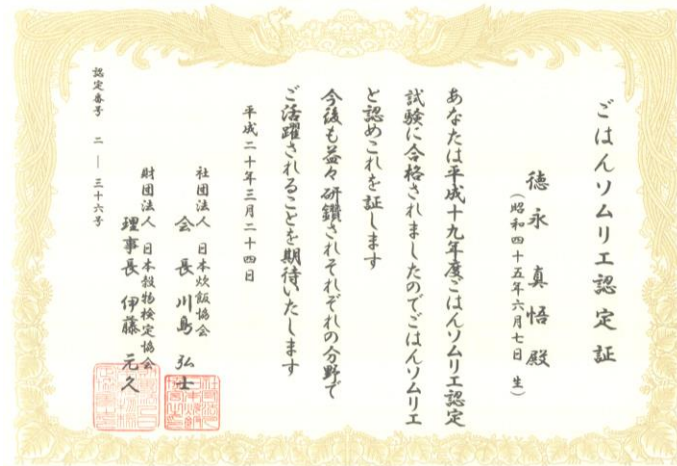 ごはんソムリエ認定証
徳永真悟殿
(昭和四十五年六月七日 生)
あなたは平成十九年度ごはんソムリエ認定
試験に合格されましたのでごはんソムリエ
と認めこれを証します
今後も益々研鑽されそれぞれの分野で
ご活躍されることを期待いたします
平成二十年三月二十四日
社団法人 日本炊飯協会
会長 川島弘士
財団法人 日本穀物検定協会
理事長 伊藤元久
認定番号 二 — 三十六号